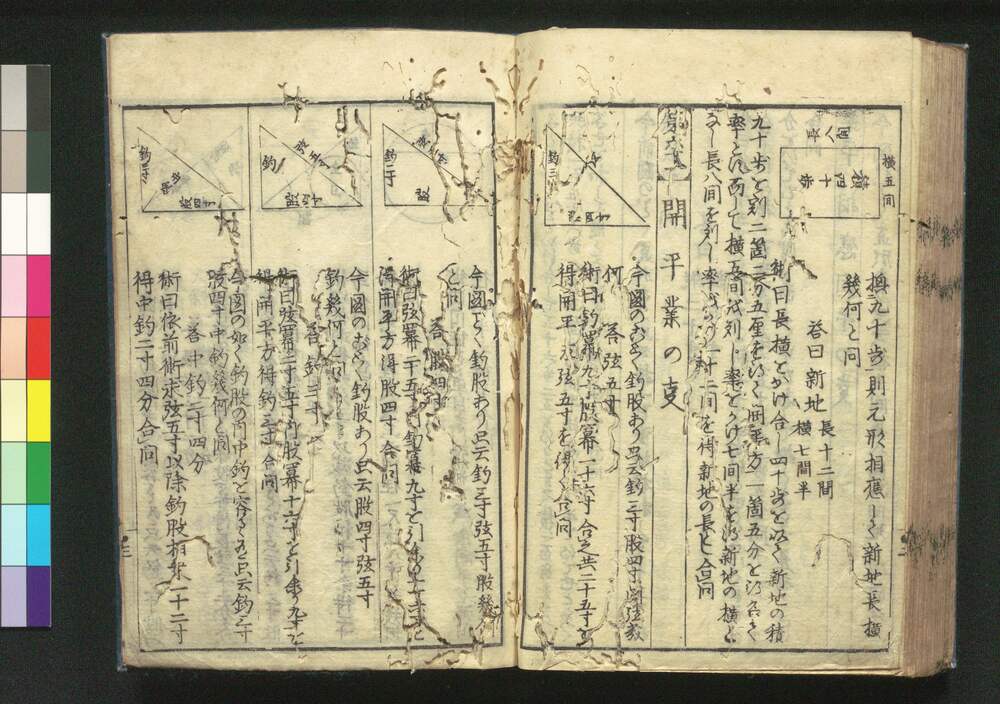 横五間
長八間
積四十歩
換九十歩則元形相應して新地長横
幾何と問
答曰新地
長十二間
横七間半
術曰長横をかけ合し四十歩を以て新地の積
九十歩を割二箇二分五厘を得て開平方一箇五分を得
率とす而して横五間を列し率をかけ七間半を得新地の横と
長八間を列し率をかけ十二間を得新地の長とし合問
開平業の支
釣三寸
股四寸
今圖のおく釣股あり只云釣三寸股四寸問弦幾
何
答弦五寸
術曰釣冪九寸股冪一十六寸合之共二十五寸を
得開平方弦五寸を得て合問
釣三寸
弦五寸
股
今圖のおく釣股あり只云釣三寸弦五寸股幾
と問
答股四寸
術曰弦冪二十五寸内釣冪九寸を引余り一十六寸と
得開平方得股四寸合問
釣
弦五寸
股四寸
今圖のおく釣股あり只云股四寸弦五寸
釣幾何と問
答釣三寸
術曰弦冪二十五寸内股冪十六寸を引余り九寸を
得開平方得釣三寸合問
釣三寸
中釣
股四寸
今圖の如く釣股の内中釣を容る有只云釣三寸
股四寸中釣幾何と問
答中釣二寸四分
術曰依前術求弦五寸以除釣股相乗一十二寸
得中釣二寸四分合問